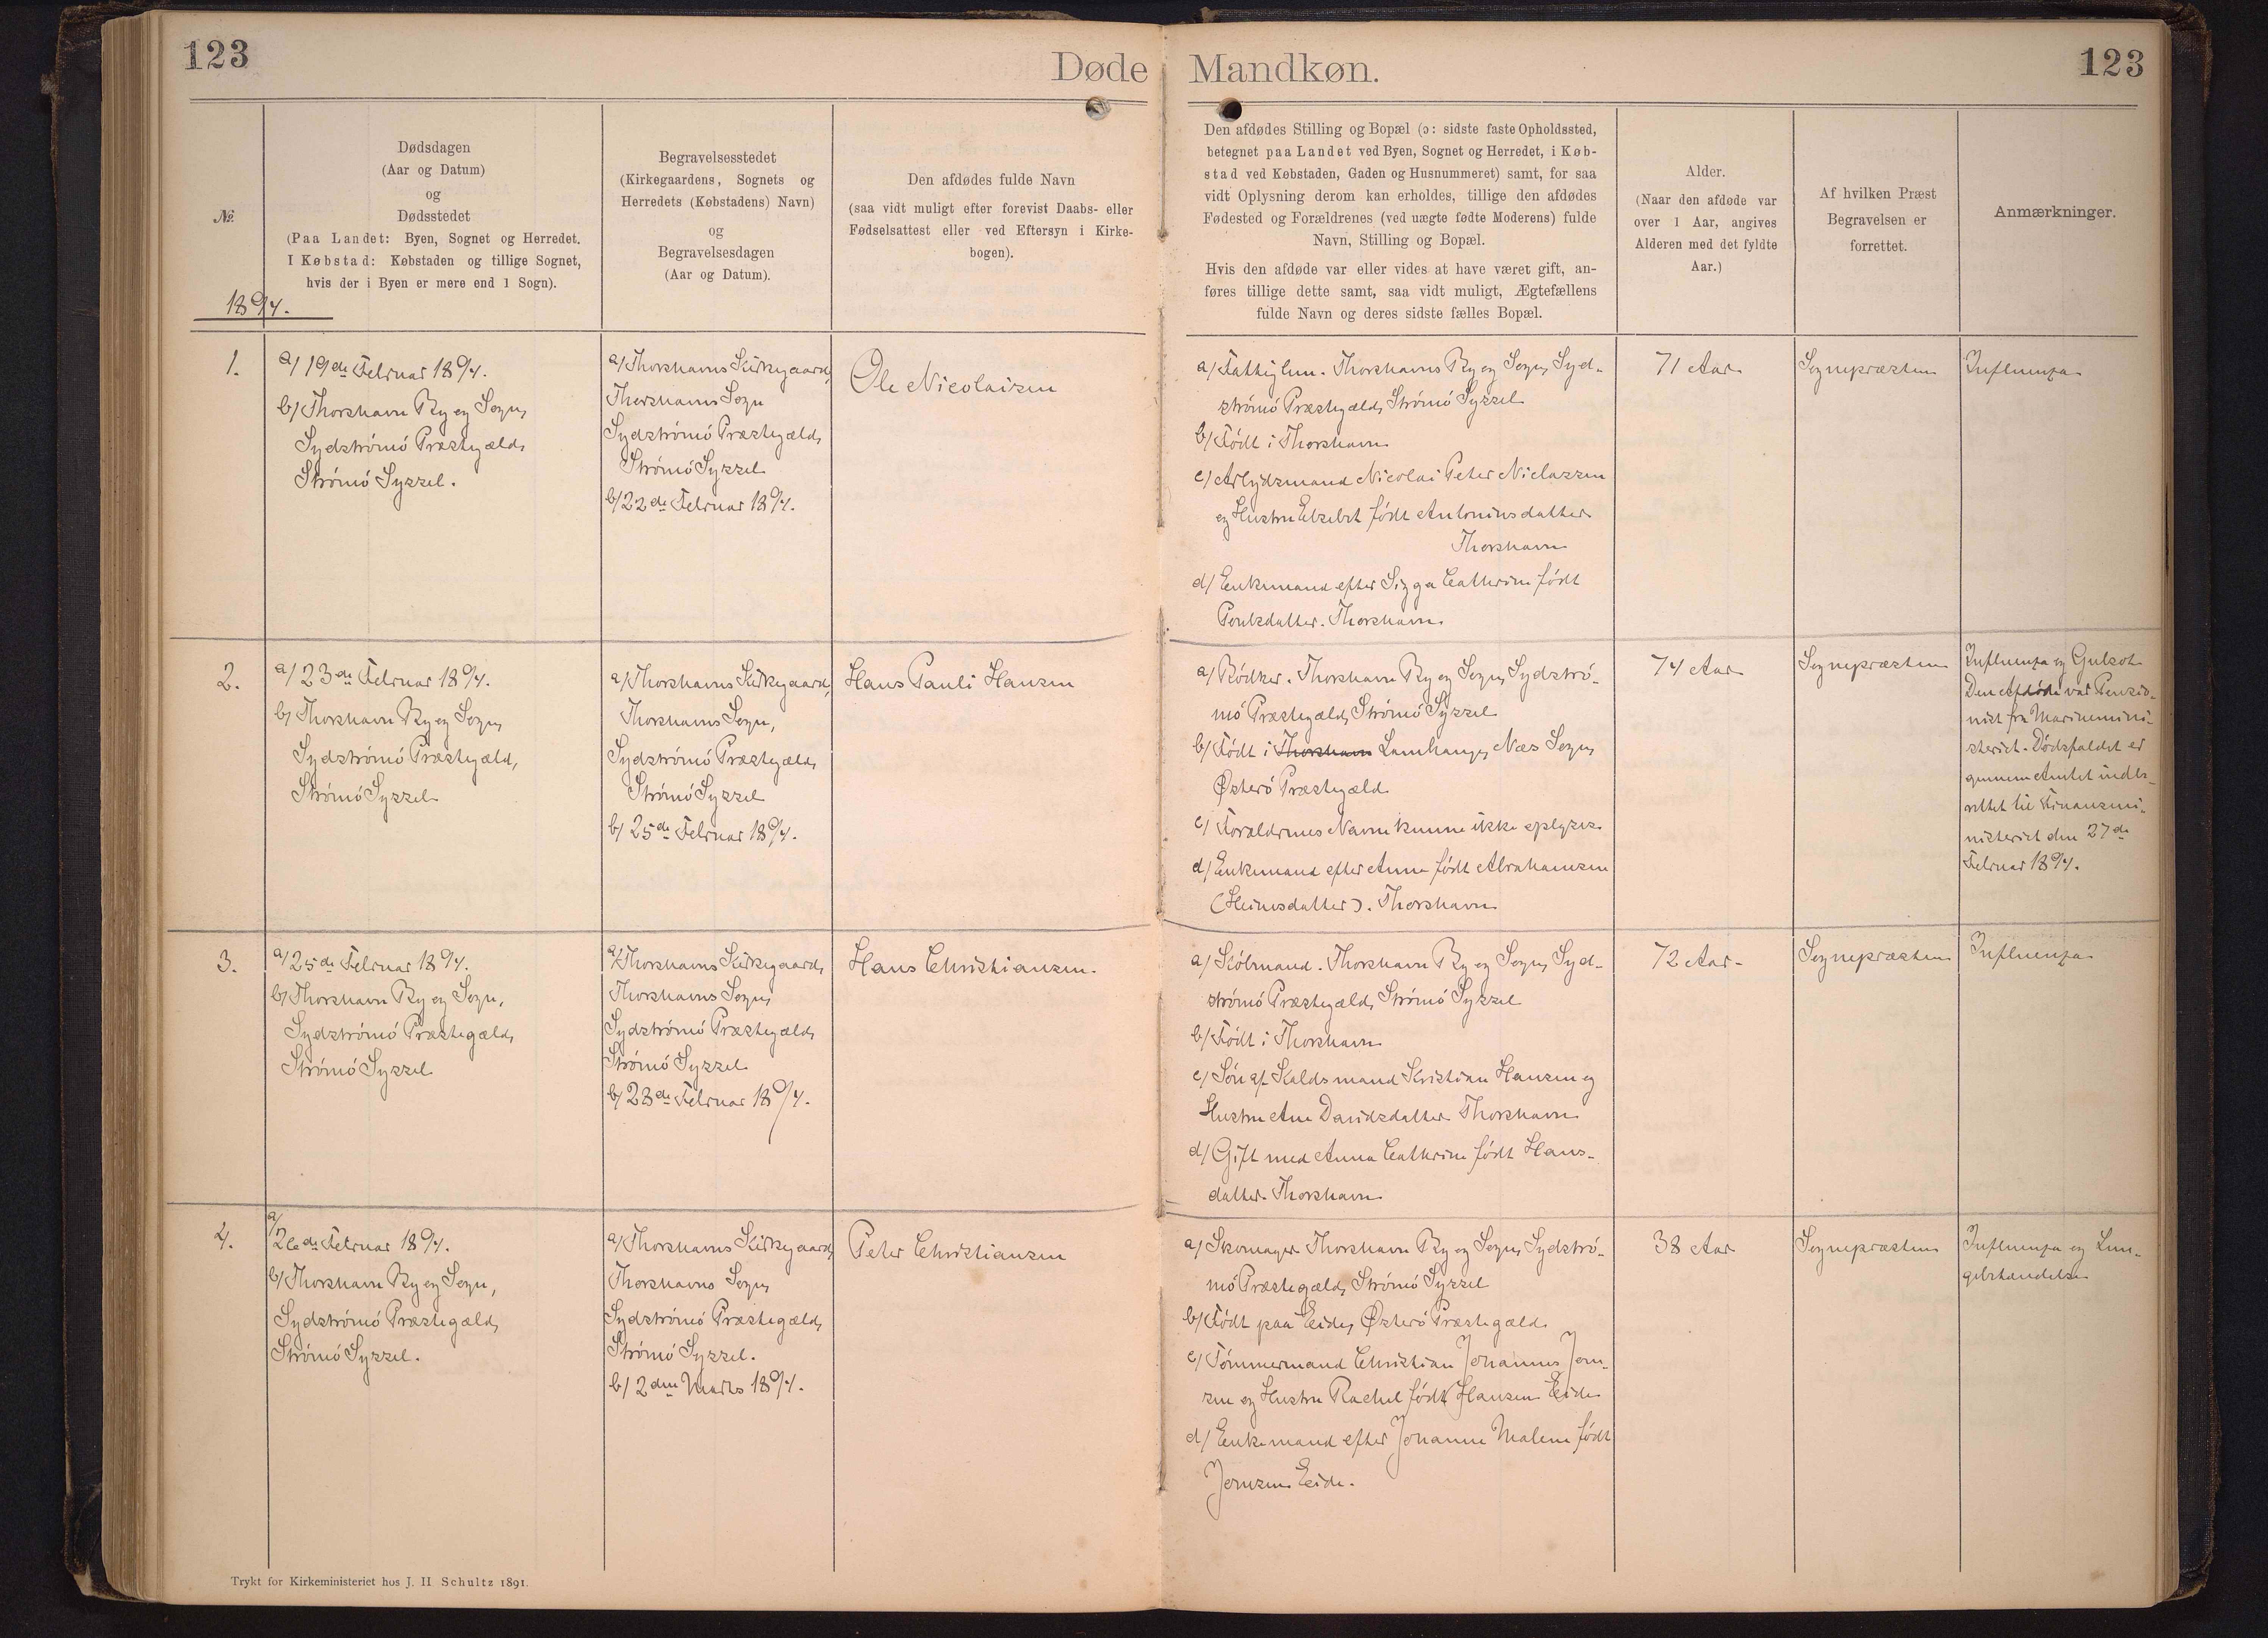 123
Døde Mandkøn.
123
№
Dødsdagen
(Aar og Datum)
og
Dødsstedet
(Paa Landet: Byen, Sognet og Herredet.
I Købstad: Købstaden og tillige Sognet,
hvis der i Byen er mere end 1 Sogn).
Begravelsesstedet
(Kirkegaardens, Sognets og
Herredets (Købstadens) Navn)
og
Begravelsesdagen
(Aar og Datum).
Den afdødes fulde Navn
(saa vidt muligt efter forevist Daabs- eller
Fødselsattest eller ved Eftersyn i Kirke-
bogen).
Den afdødes Stilling og Bopæl (ɔ: sidste faste Opholdssted,
betegnet paa Landet ved Byen, Sognet og Herredet, i Køb-
stad ved Købstaden, Gaden og Husnummeret) samt, for saa
vidt Oplysning derom kan erholdes, tillige den afdødes
Fødested og Forældrenes (ved uægte fødte Moderens) fulde
Navn, Stilling og Bopæl.
Hvis den afdøde var eller vides at have været gift, an-
føres tillige dette samt, saa vidt muligt, Ægtefællens
fulde Navn og deres sidste fælles Bopæl.
Alder.
(Naar den afdøde var
over 1 Aar, angives
Alderen med det fyldte
Aar.)
Af hvilken Præst
Begravelsen er
forrettet.
Anmærkninger.
1894.
1.
a/ 19de Februar 1894.
b/ Thorshavn By og Sogn,
Sydströmö Præstegæld,
Strömö Syssel.
a/ Thorshavns Kirkegaard,
Thorshavns Sogn
Sydströmö Præstegæld,
Strömö Syssel
b/ 22de Februar 1894.
Ole Nicolaisen
a/ Fattiglem. Thorshavns By og Sogn, Syd-
strömö Præstegæld, Strömö Syssel
b/ Födt i Thorshavn
c/ Arbejdsmand Nicolai Peter Niclassen
og Hustru Elsebet födt Antoniusdatter
Thorshavn
d/ Enkemand efter Sigga Cathrine födt
Poulsdatter. Thorshavn.
71 Aar
Sognepræsten
Influenza
2.
a/ 23de Februar 1894.
b/ Thorshavn By og Sogn,
Sydströmö Præstegæld,
Strömö Syssel
a/ Thorshavns Kirkegaard,
Thorshavns Sogn,
Sydströmö Præstegæld,
Strömö Syssel
b/ 25de Februar 1894.
Hans Pauli Hansen
a/ Bödker. Thorshavn By og Sogn, Sydströ-
mö Præstegæld, Strömö Syssel
b/ Födt i Thorshavn Lamhauge, Næs Sogn,
Østerö Præstegæld
c/ Forældrenes Navne kunne ikke oplyses.
d/ Enkemand efter Anne födt Abrahamsen
(Heinesdatter). Thorshavn
74 Aar
Sognepræsten
Influenza og Gulsot
Den Afdöde var Pensio-
nist fra Marinemini-
steriet. Dödsfaldet er
gennem Amtet indbe-
rettet til Finansmi-
nisteriet den 27de
Februar 1894.
3.
a/ 25de Februar 1894.
b/ Thorshavn By og Sogn,
Sydströmö Præstegæld,
Strömö Syssel
a/ Thorshavns Kirkegaard,
Thorshavns Sogn,
Sydströmö Præstegæld,
Strömö Syssel
b/ 28de Februar 1894.
Hans Christiansen.
a/ Købmand. Thorshavn By og Sogn, Syd-
strömö Præstegæld, Strömö Syssel
b/ Födt i Thorshavn
c/ Sön af Koldsmand Kristian Hansen og
Hustru Ane Davidsdatter Thorshavn
d/ Gift med Anna Cathrine födt Hans-
datter. Thorshavn
72 Aar
Sognepræsten
Influenza
4.
a/ 26de Februar 1894.
b/ Thorshavn By og Sogn,
Sydströmö Præstegæld,
Strömö Syssel.
a/ Thorshavns Kirkegaard,
Thorshavns Sogn,
Sydströmö Præstegæld,
Strömö Syssel.
b/ 2den Marts 1894.
Peter Christiansen
a/ Skomager Thorshavn By og Sogn, Sydströ-
mö Præstegæld, Strömö Syssel
b/ Födt paa Eide, Østerö Præstegæld.
c/ Tömmermand Christian Johannes Joen-
sen og Hustru Rachel födt Hansen Eide
d/ Enkemand efter Johanne Malene födt
Joensen Eide.
38 Aar
Sognepræsten
Influenza og Lun-
gebetændelse
Trykt for Kirkeministeriet hos J. H. Schultz 1891.